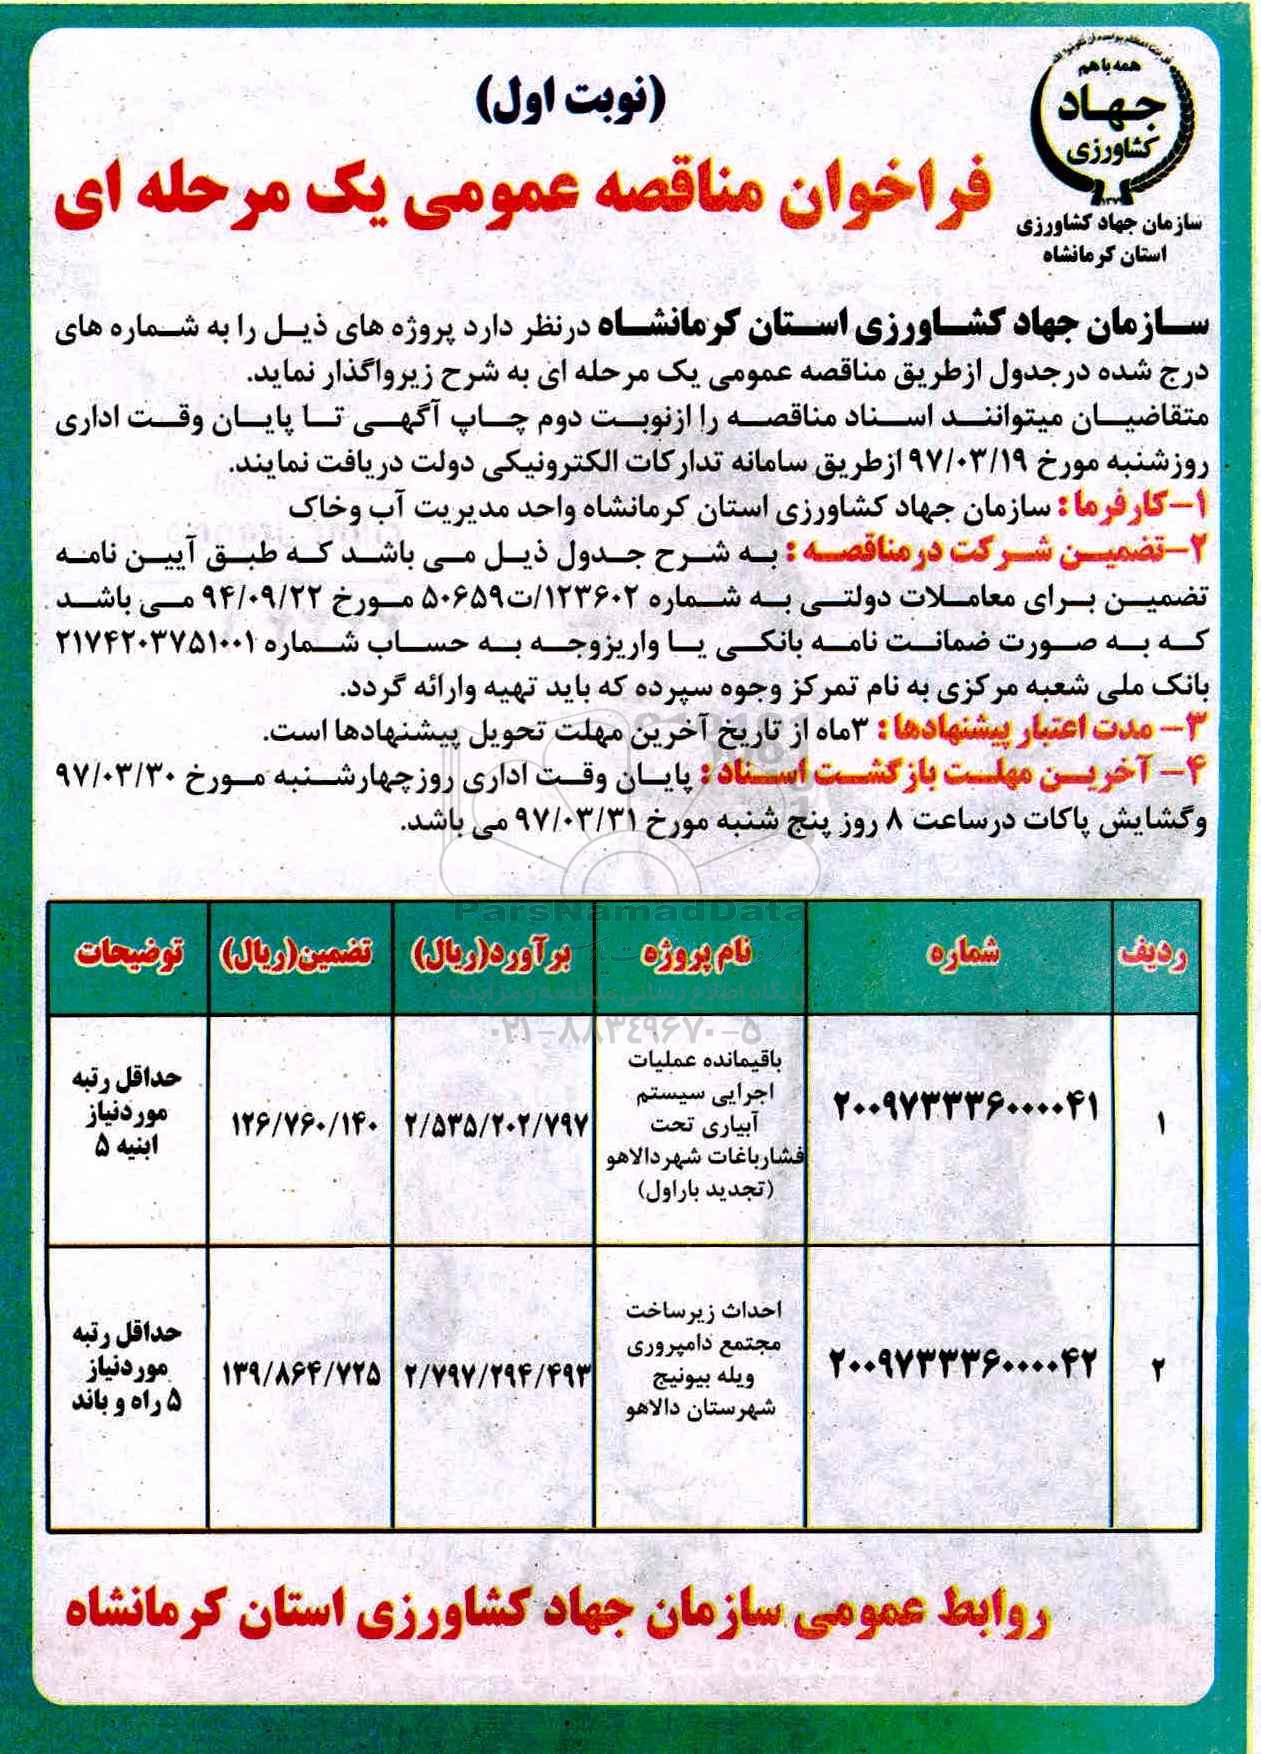 همه با هم
جهاد
کشاورزی
سازمان جهاد کشاورزی
استان کرمانشاه
(نوبت اول)
فراخوان مناقصه عمومی یک مرحله ای
سازمان جهاد کشاورزی استان کرمانشاه درنظر دارد پروژه های ذیل را به شماره های
درج شده درجدول ازطریق مناقصه عمومی یک مرحله ای به شرح زیرواگذار نماید.
متقاضیان میتوانند اسناد مناقصه را ازنوبت دوم چاپ آگهی تا پایان وقت اداری
روزشنبه مورخ ۹۷/۰۳/۱۹ ازطریق سامانه تدارکات الکترونیکی دولت دریافت نمایند.
۱-کارفرما: سازمان جهاد کشاورزی استان کرمانشاه واحد مدیریت آب وخاک
۲-تضمین شرکت درمناقصه: به شرح جدول ذیل می باشد که طبق آیین نامه
تضمین برای معاملات دولتی به شماره ۱۲۳۶۰۲/ت۵۰۶۵۹ مورخ ۹۴/۰۹/۲۲ می باشد
که به صورت ضمانت نامه بانکی یا واریزوجه به حساب شماره ۲۱۷۴۲۰۳۷۵۱۰۰۱
بانک ملی شعبه مرکزی به نام تمرکز وجوه سپرده که باید تهیه وارائه گردد.
۳- مدت اعتبار پیشنهادها: ۳ماه از تاریخ آخرین مهلت تحویل پیشنهادها است.
۴- آخرین مهلت بازگشت اسناد: پایان وقت اداری روزچهارشنبه مورخ ۹۷/۰۳/۳۰
وگشایش پاکات درساعت ۸ روز پنج شنبه مورخ ۹۷/۰۳/۳۱ می باشد.
ParsNamadData
ردیف شماره نام پروژه برآورد(ریال) تضمین(ریال) توضیحات
پایگاه اطلاع رسانی مناقصه و مزایده
۰۲۱-۸۸۳۴۹۶۷۰-۵
۱ ۲۰۰۹۷۳۳۳۶۰۰۰۰۴۱ باقیمانده عملیات اجرایی سیستم آبیاری تحت فشارباغات شهردالاهو (تجدید باراول) ۲/۵۳۵/۲۰۲/۷۹۷ ۱۲۶/۷۶۰/۱۴۰ حداقل رتبه موردنیاز ابنیه ۵
۲ ۲۰۰۹۷۳۳۳۶۰۰۰۰۴۲ احداث زیرساخت مجتمع دامپروری ویله بیونیج شهرستان دالاهو ۲/۷۹۷/۲۹۴/۴۹۳ ۱۳۹/۸۶۴/۷۲۵ حداقل رتبه موردنیاز ۵ راه و باند
روابط عمومی سازمان جهاد کشاورزی استان کرمانشاه